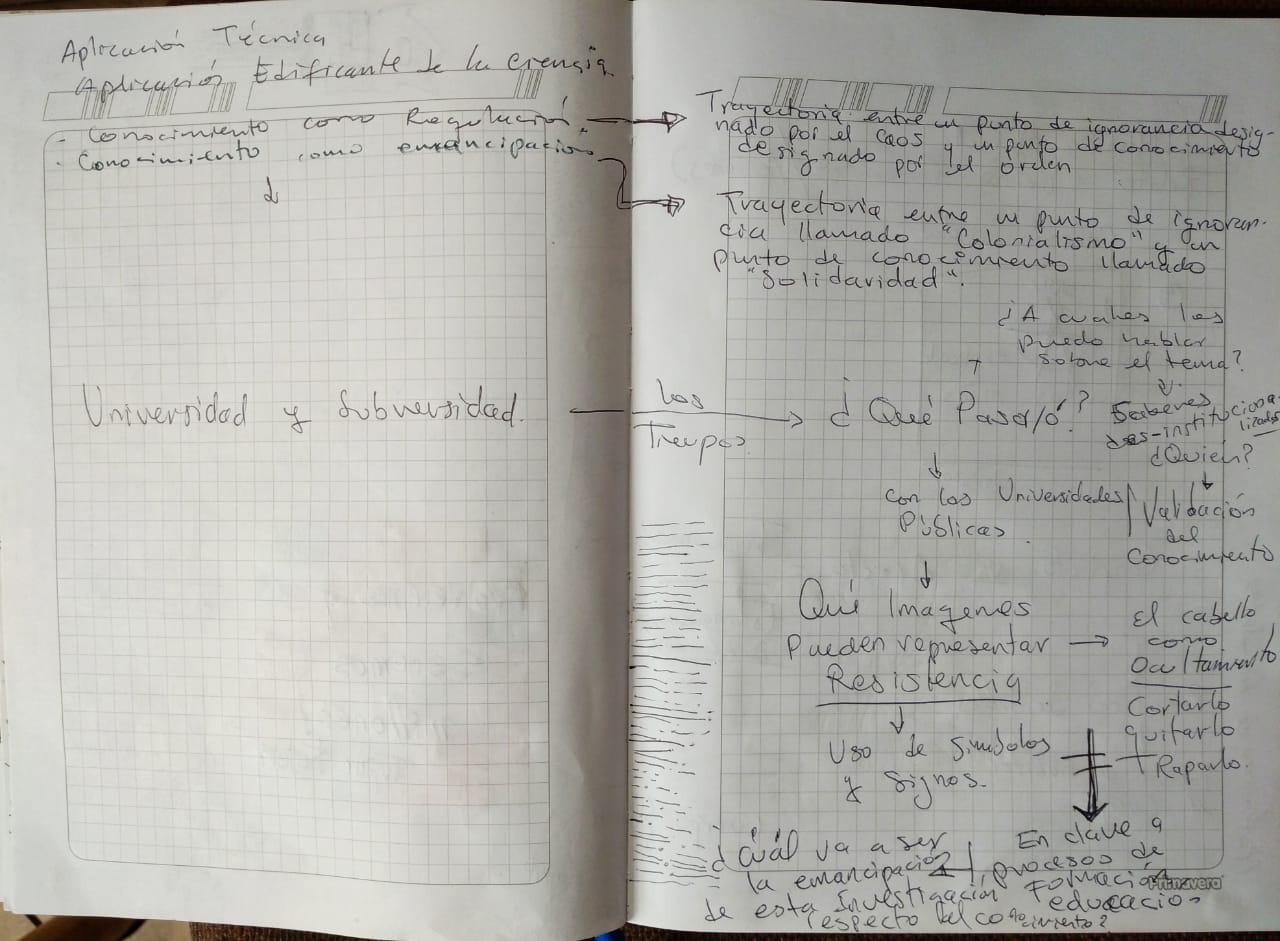 Aplicación Técnica
Aplicación Edificante de la ciencia
- Conocimiento como Regulación
- Conocimiento como emancipación
Universidad y Subversidad.
Trayectoria entre un punto de ignorancia desig-
nado por el caos y un punto de conocimiento
designado por el orden
Trayectoria entre un punto de ignoran-
cia llamado "Colonialismo" y un
punto de conocimiento llamado
"Solidaridad".
¿A cuales les
puedo hablar
sobre el tema?
Los
Tiempos
¿Qué Pasa/ó?
Saberes
des-instituciona-
lizados
¿Quién?
Validación
del
Conocimiento
con las Universidades
Públicas.
Qué Imagenes
Pueden representar
Resistencia
El cabello
como
Ocultamiento
Cortarlo
quitarlo
Raparlo.
Uso de Simbolos
y Signos.
¿Cuál va a ser
la emancipación
de esta Investigación
respecto del conocimiento?
En clave a
procesos de
Formación
educacio
Primavera